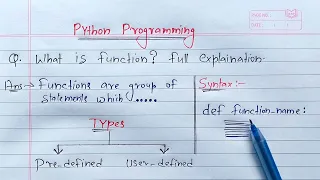 Python Programming
Q. What is function? full explaination.
Ans→ Functions are group of
statements which .....
Types
Pre-defined User-defined
Syntax:-
def function-name: